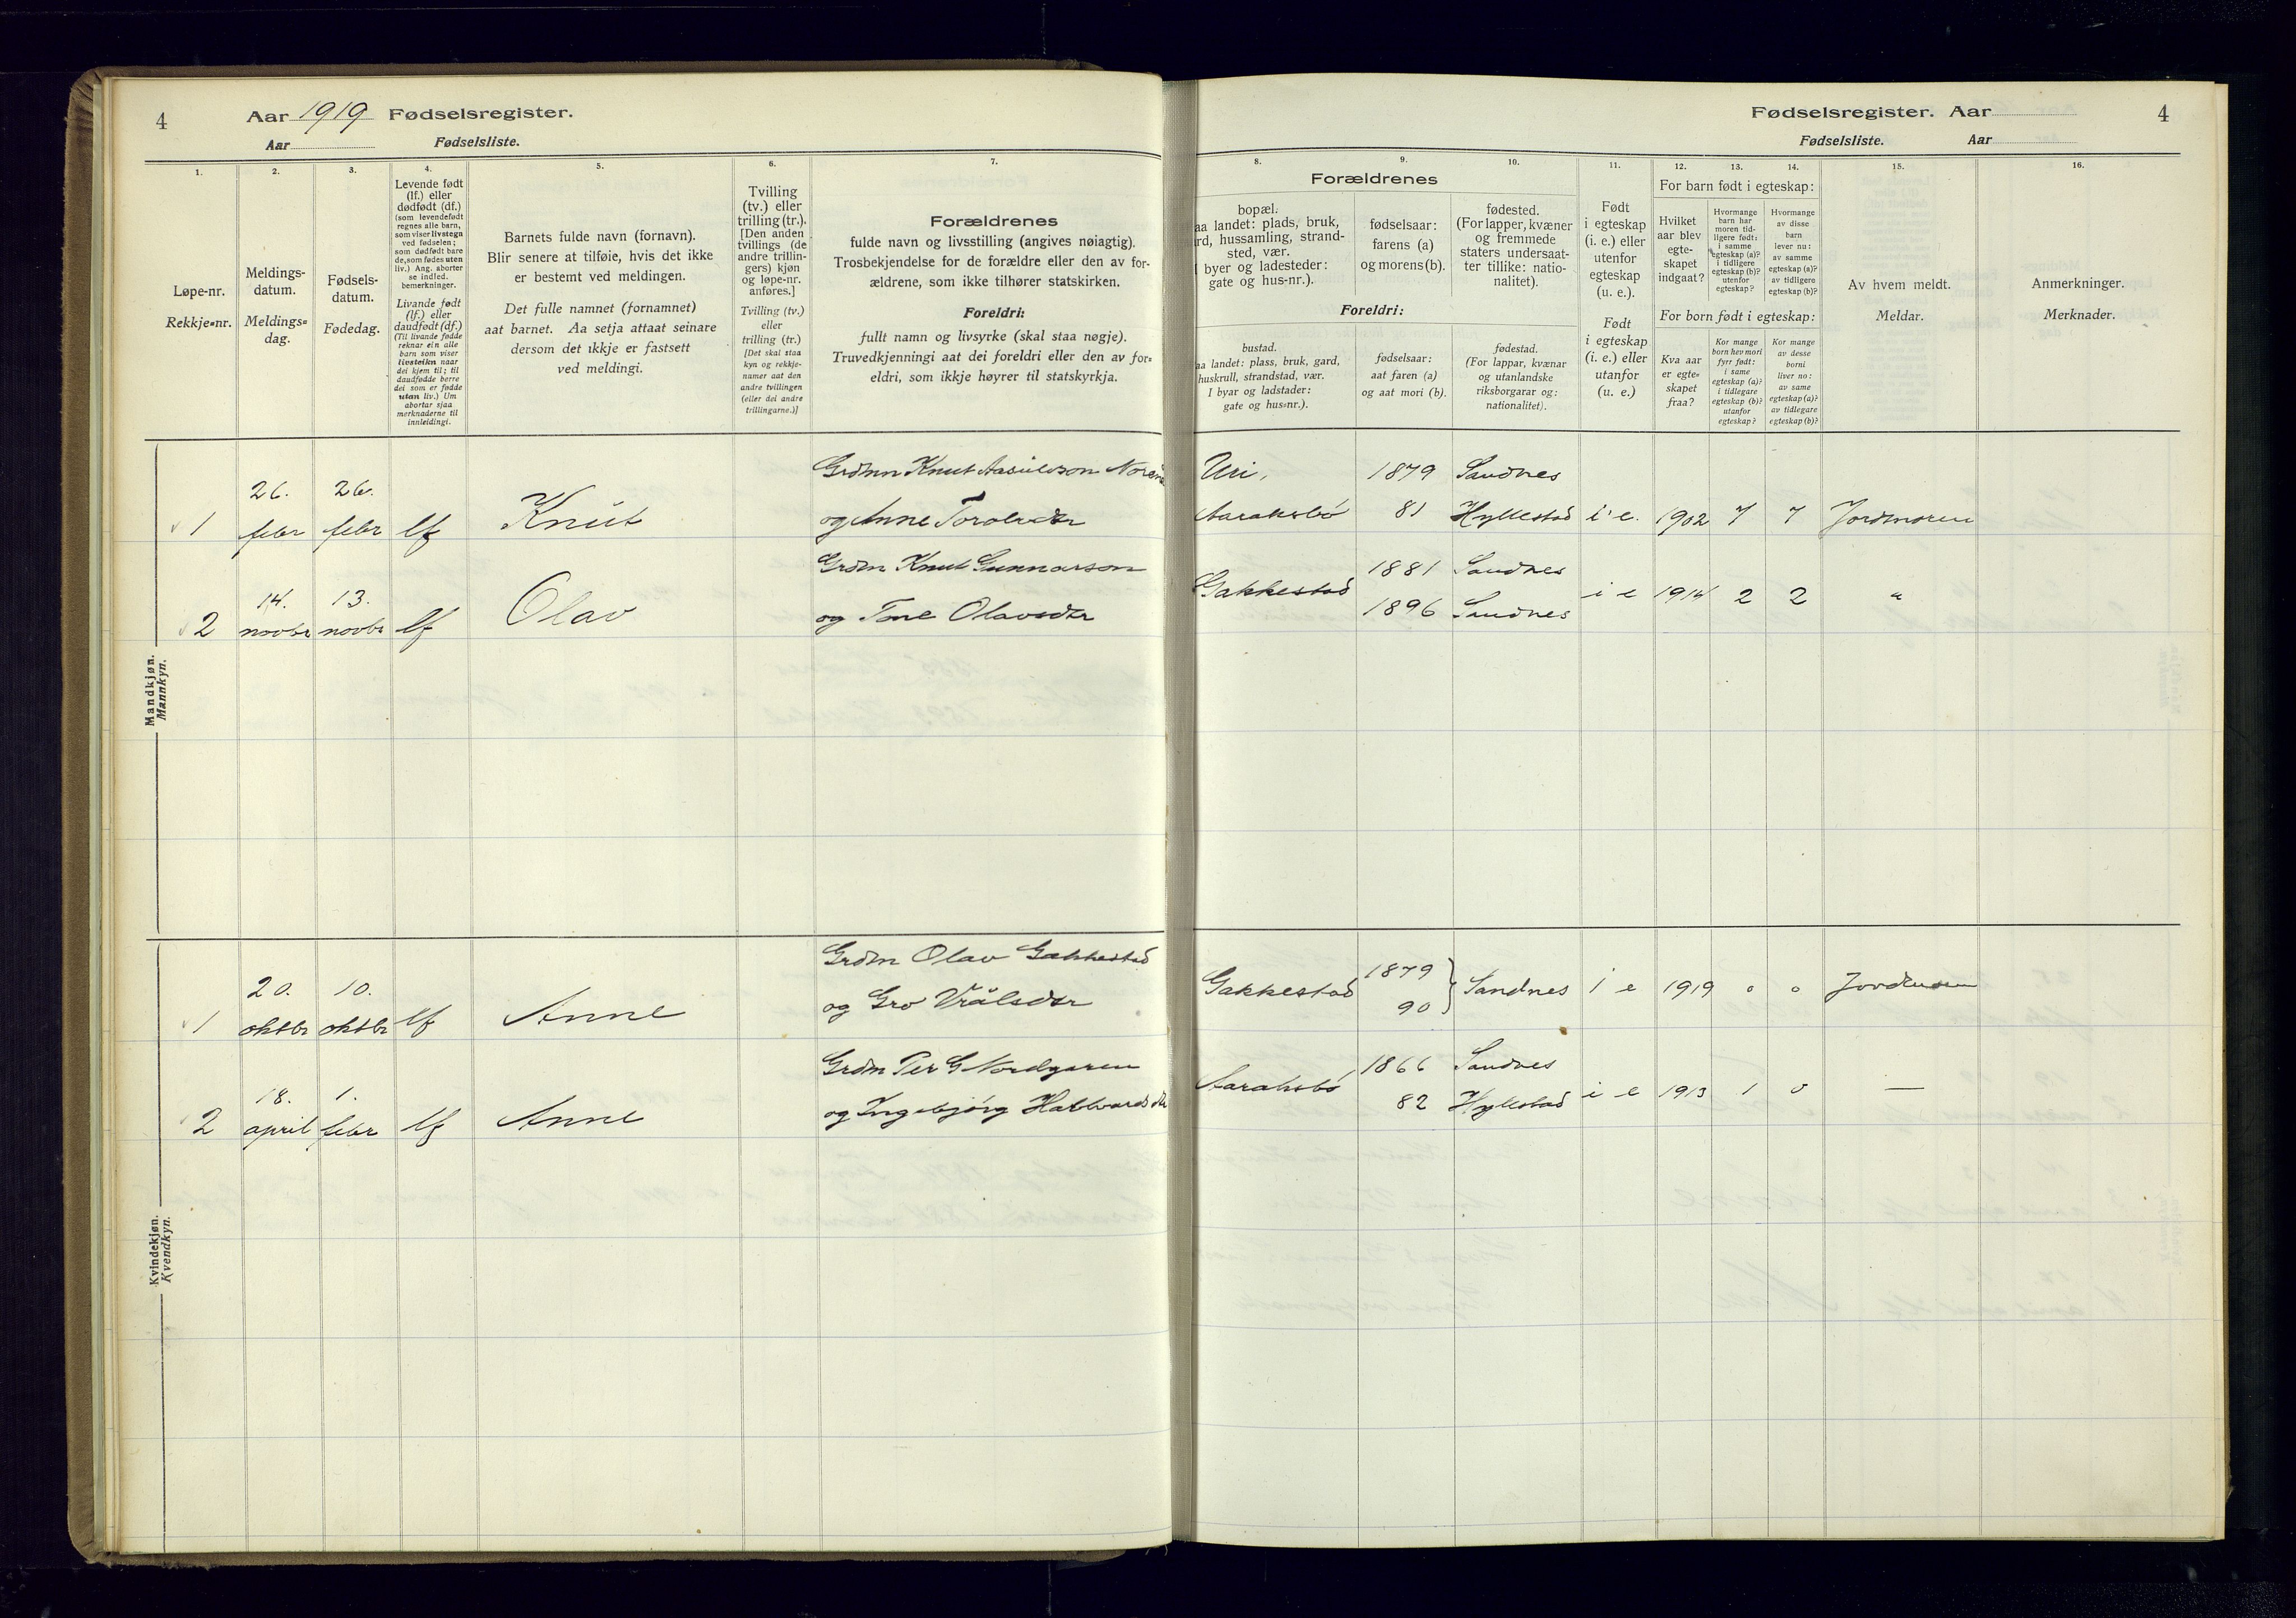 4 Aar 1919 Fødselsregister.
Aar Fødselsliste.
Fødselsregister. Aar 4
Fødselsliste. Aar
1. 2. 3. 4. 5. 6. 7.
8. 9. 10. 11. 12. 13. 14. 15. 16.
Løpe-nr.
Rekkje-nr.
Meldings-
datum.
Meldings-
dag.
Fødsels-
datum.
Fødedag.
Levende født
(lf.) eller
dødfødt (df.)
(som levendefødt
regnes alle barn,
som viser livstegn
ved fødselen;
som dødfødt bare
de, som fødes uten
liv.) Ang. aborter
se indled.
bemerkninger.
Livande født
(lf.) eller
daudfødt (df.)
(Til livande fødde
reknar ein alle
barn som viser
livsteikn naar
dei kjem til; til
daudfødde berre
dei som er fødde
utan liv.) Um
abortar sjaa
merknaderne til
innleidingi.
Barnets fulde navn (fornavn).
Blir senere at tilføie, hvis det ikke
er bestemt ved meldingen.
Det fulle namnet (fornamnet)
aat barnet. Aa setja attaat seinare
dersom det ikkje er fastsett
ved meldingi.
Tvilling
(tv.) eller
trilling (tr.).
[Den anden
tvillings (de
andre trillin-
gers) kjøn
og løpe-nr.
anføres.]
Tvilling (tv.)
eller
trilling (tr.)
[Det skal staa
kyn og rekkje-
numer aat den
andre tvillingen
(eller dei andre
trillingarne.)]
Forældrenes
fulde navn og livsstilling (angives nøiagtig).
Trosbekjendelse for de forældre eller den av for-
ældrene, som ikke tilhører statskirken.
Foreldri:
fullt namn og livsyrke (skal staa nøgje).
Truvedkjenningi aat dei foreldri eller den av for-
eldri, som ikkje høyrer til statskyrkja.
Forældrenes
bopæl.
aa landet: plads, bruk,
rd, hussamling, strand-
sted, vær.
I byer og ladesteder:
gate og hus-nr.).
fødselsaar:
farens (a)
og morens (b).
fødested.
(For lapper, kvæner
og fremmede
staters undersaat-
ter tillike: natio-
nalitet).
Foreldri:
bustad.
aa landet: plass, bruk, gard,
huskrull, strandstad, vær.
I byar og ladstader:
gate og hus-nr.).
fødselsaar:
aat faren (a)
og aat mori (b).
fødestad.
(For lappar, kvænar
og utanlandske
riksborgarar og:
nationalitet).
Født
i egteskap
(i. e.) eller
utenfor
egteskap
(u. e.).
Født
i egteskap
(i. e.) eller
utanfor
(u. e.)
For barn født i egteskap:
Hvilket
aar blev
egte-
skapet
indgaat?
Hvormange
barn har
moren tid-
ligere født:
i samme
egteskap (a)?
i tidligere
egteskap (b)?
utenfor
egteskap?
Hvormange
av disse
barn
lever nu:
av samme
egteskap (a)?
av tidligere
egteskap (b)?
For born født i egteskap:
Kva aar
er egte-
skapet
fraa?
Kor mange
born hev mori
fyrr født:
i same
egteskap (a)?
i tidlegare
egteskap (b)?
utanfor
egteskap?
Kor mange
av desse
borni
liver no:
av same
egteskap (a)?
av tidlegare
egteskap (b)?
Av hvem meldt.
Meldar.
Anmerkninger.
Merknader.
Mandkjøn.
Mannkyn.
Grdmn Knut Aasulvson Uri, 1879 Sandnes
1 26. febr 26. febr lf Knut og Anne Torolvsdtr Aaraksbø 81 Hyllestad i e. 1902 7 7 Jordmoren
Grdm Knut Gunnarson Gakkestad 1881 Sandnes
2 14. novbr 13. novbr lf Olav og Tone Olavsdtr 1896 Sandnes i e 1914 2 2 "
Kvindekjøn.
Kvendkyn.
Grdm Olav Gakkestad Gakkestad 1879
1 20. oktbr 10. oktbr lf Anne og Gro Vrålsdtr 90 } Sandnes i e 1919 0 0 Jordmoren
Grdm Per G Nordgaren Aaraksbø 1866 Sandnes
2 18. april 1. febr lf Anne og Ingebjörg Hallvardsdtr 82 Hyllestad i e 1913 1 0 —